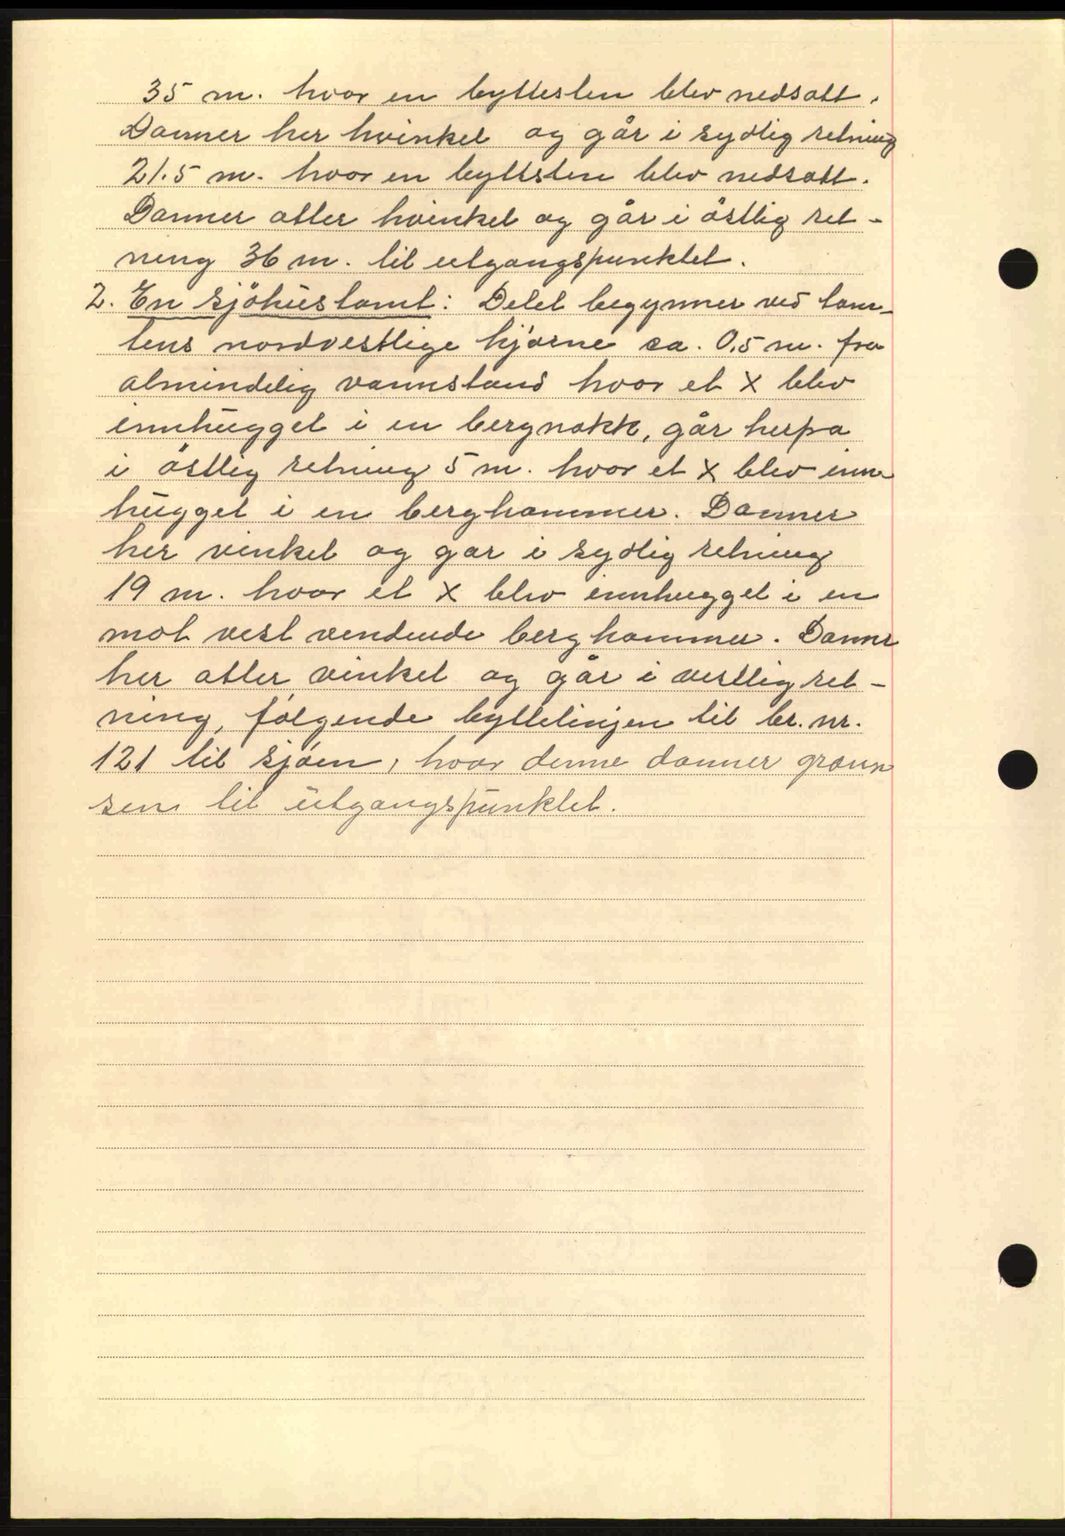 35 m. hvor en byttesten blev nedsatt.
Danner her hvinkel og går i sydlig retning
21.5 m. hvor en byttsten blev nedsatt.
Danner atter hvinkel og går i östlig ret-
ning 36 m. til utgangspunktet.
2. En sjöhustomt: Delet begynner ved tom-
tens nordvestlige hjörne ca. 0,5 m. fra
almindelig vannstand hvor et X blev
innhugget i en bergnakk, går herpa
i östlig retning 5 m. hvor et X blev inn-
hugget i en berghammer. Danner
her vinkel og gar i sydlig retning
19 m. hvor et X blev innhugget i en
mot vest vendende berghammer. Danner
her atter vinkel og går i vestlig ret-
ning, fölgende byttelinjen til br. nr.
121 til sjöen, hvor denne danner gren-
sen til utgangspunktet.